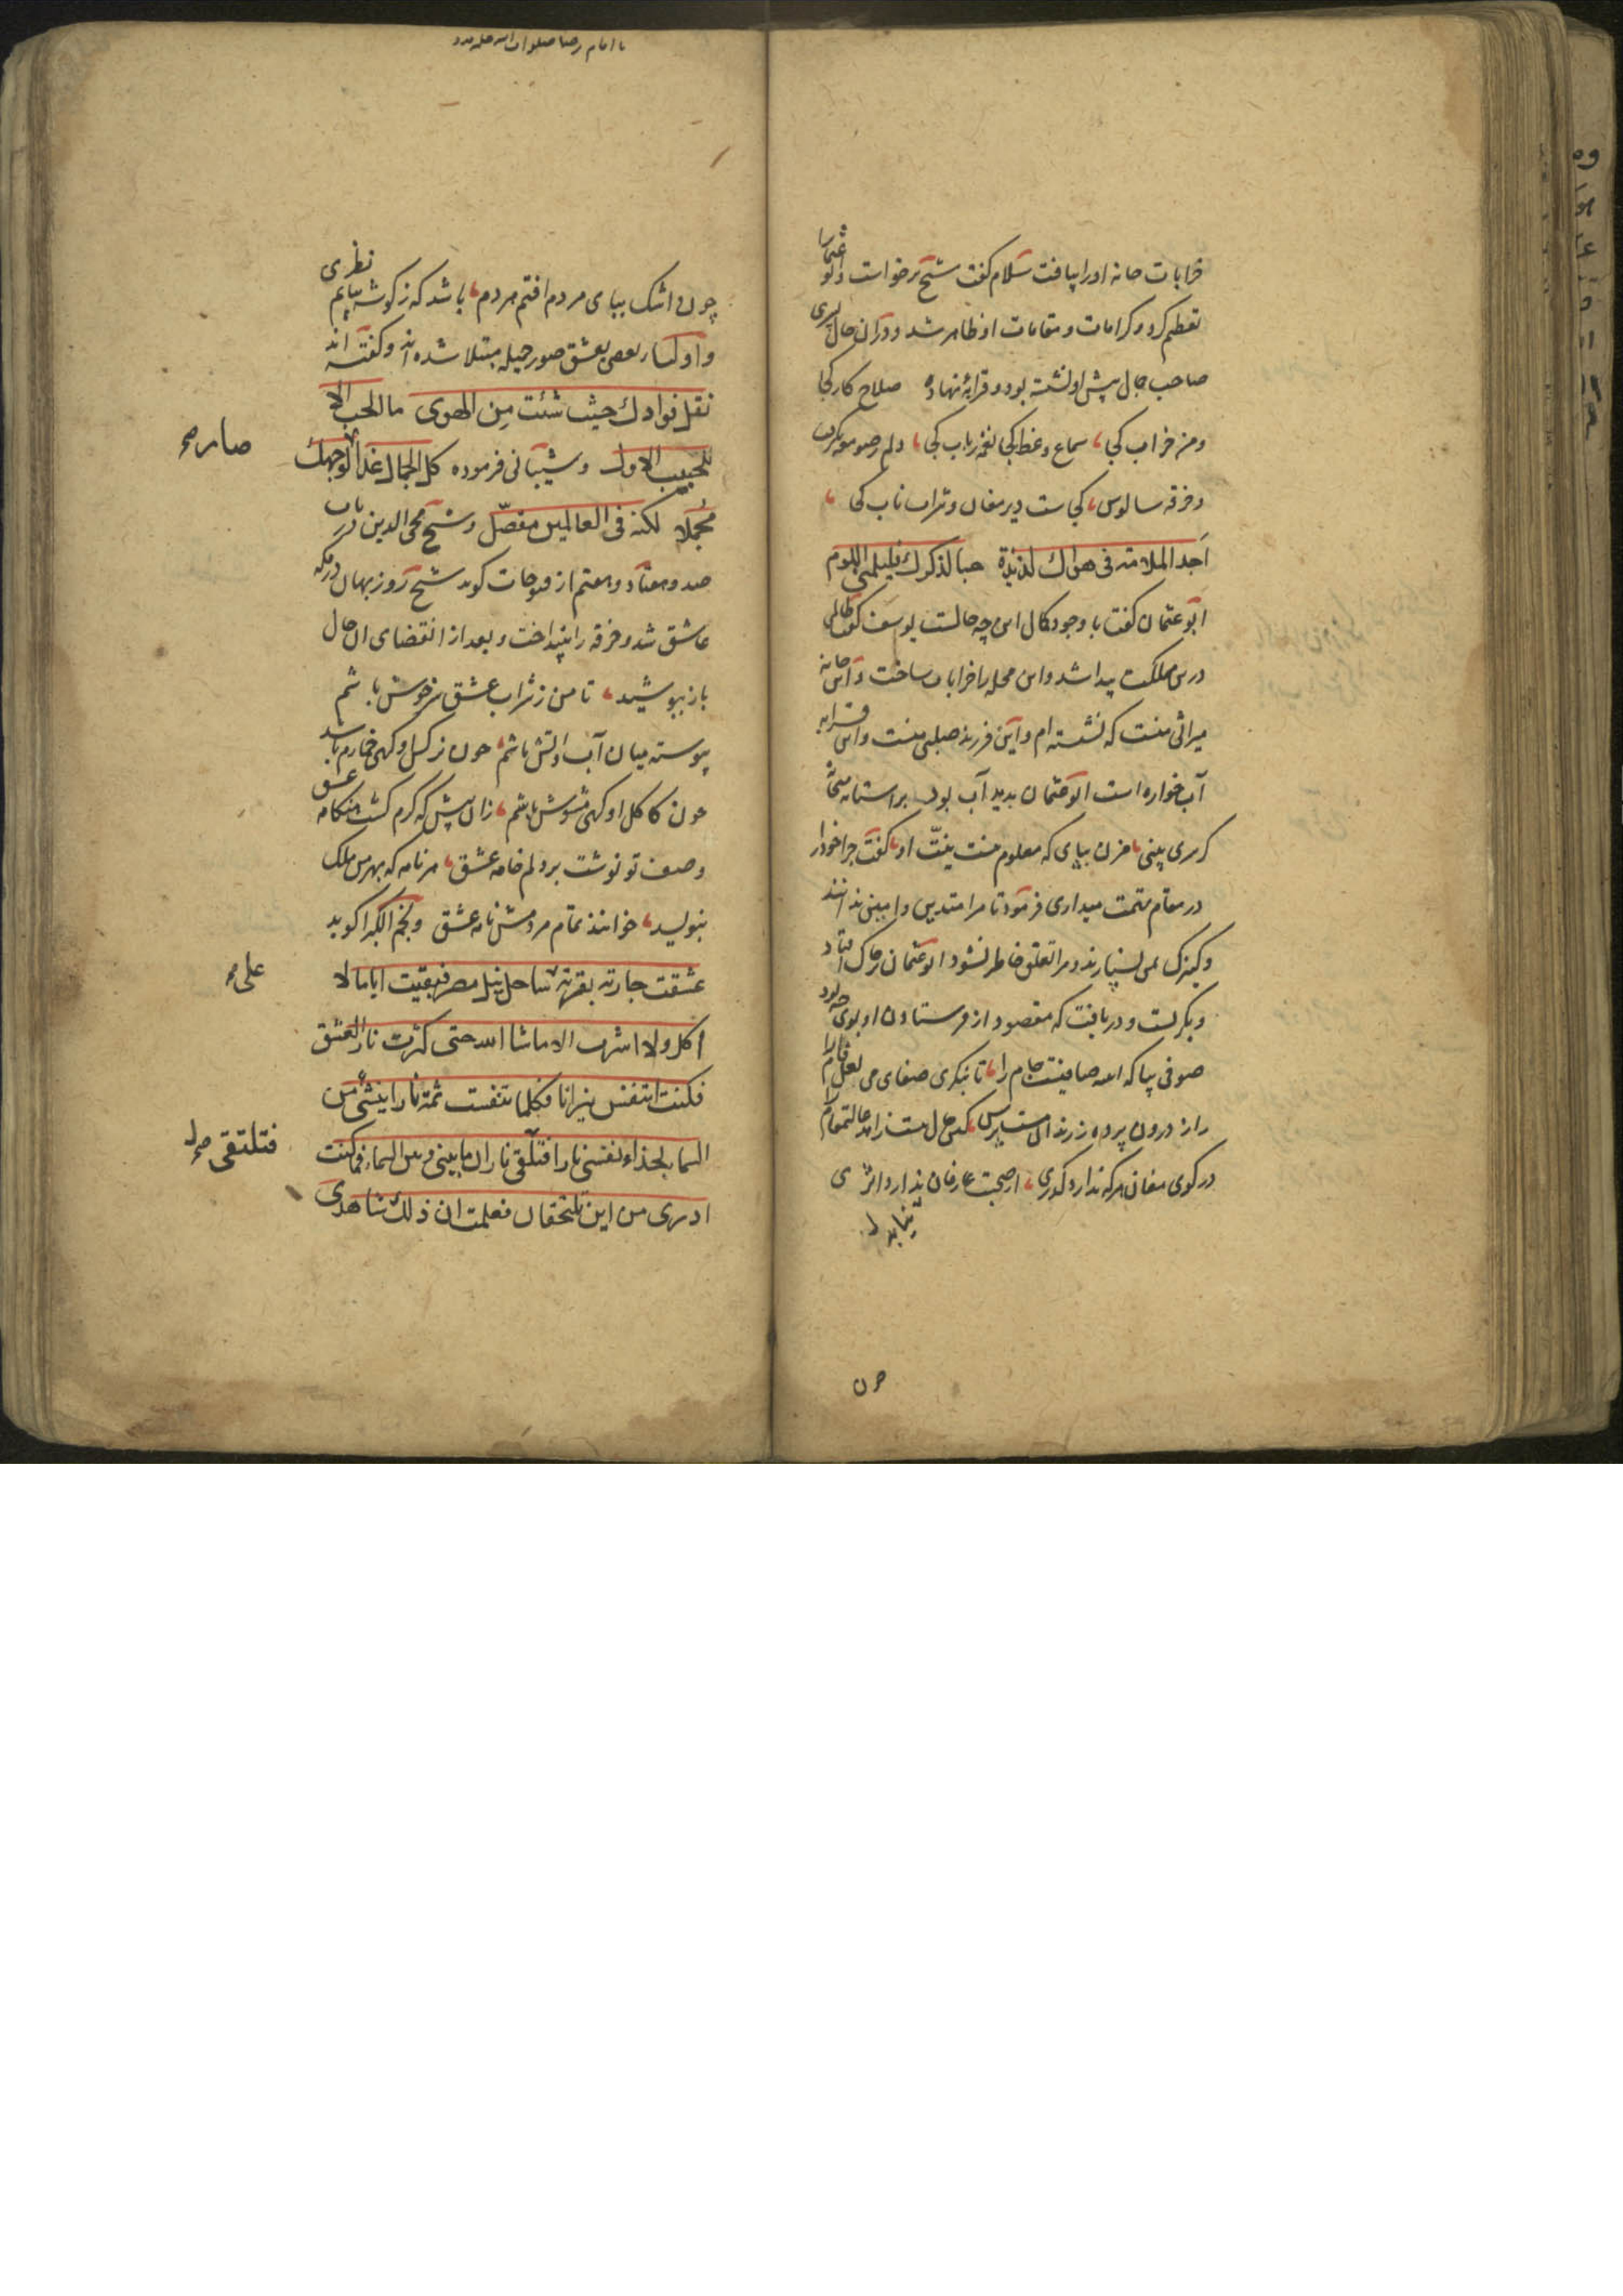 خرابات خانه اورا یافت سلام گفت شیخ برخواست و ابو عثمانرا
تعظیم کرد و کرامات و مقامات او ظاهر شد و در ان حال پسری
صاحب جمال پیش او نشسته بود و قرابهٔ نهاده صلاح کار کجا
و من خراب کجا، سماع وعظ کجا نغمه رباب کجا، دلم ز صومعه بگرفت
و خرقه سالوس، کجاست دیر مغان و شراب ناب کجا،
اجد الملامة فی هواك لذیذة حبا لذکرك فلیلمنی اللوم
ابو عثمان گفت با وجود کمال این چه حالست یوسف گفت ظالمی
درین مملکت پیدا شد و این محله را خرابات ساخت و این خانه
میراثی منست که نشسته ام و این فرزند صلبی منست و این قرابه
آب خواره است ابو عثمان بدید آب بود بر استانه میخانه
گر سری بینی، مزن بپای که معلوم نیست نیّت او، گفت چرا خود را
در مقام تهمت میداری فرمود تا مرا متدین و امین ندانند
و کنیزک بمن نسپارند و مرا تعلق خاطر نشود ابو عثمان بر خاک افتاد
و بگریست و دریافت که مقصود از فرستادن او بوی چه بود
صوفی بیا که اینه صافیست جام را، تا بنگری صفای می لعل فام را
راز درون پرده ز رندان مست پرس، کین حال نیست زاهد عالی مقام را
در کوی مغان هرکه ندارد گذری، از صحبت عارفان ندارد اثری
نیابد
چون
یا امام رضا صلوات الله علیه مدد
چون اشک بپای مردم افتم مردم، باشد که ز گوشه بیابم نظری
و اولیا بعضی بعشق صور جمیله مبتلا شده اند و گفته اند
نقل فوادك حیث شئت من الهوی ما الحب الا
للحبیب الاول و شیبانی فرموده کل الجمال غدا لوجهك
صار صح
مجملا لکنه فی العالمین مفصّل و شیخ محی الدین در باب
صد و هفتاد و هفتم از فتوحات کوید شیخ روزبهان در مکه
عاشق شد و خرقه را بینداخت و بعد از انقضای ان حال
باز بپوشید، تا من ز شراب عشق سرخوش باشم
پیوسته میان آب و اتش باشم، چون نرکس او کهی خمارم باشد
چون کاکل او کهی مشوش باشم، زان پیش که کرم کشت هنکامه عشق
وصف تو نوشت بر دلم خامه عشق، هر نامه که بهر من ملک
بنوسید، خوانند تمام مردمش نامه عشق و نجم الکبرا کوید
عشقت جاریة بقریة بساحل نیل مصر فبقیت ایاما لا
علی صح
اکل ولا اشرب الا ما شا الله حتی کثرت نار العشق
فکنت اتنفس نیرانا فکلما تنفست ثمة نارا ینشئ من
السما بحذاء نفسی نارا فتلقی ناران ما بینی و بین السماء فما کنت
فتلتقی صح
ادری من این تلتحقان فعلمت ان ذلك شاهدی